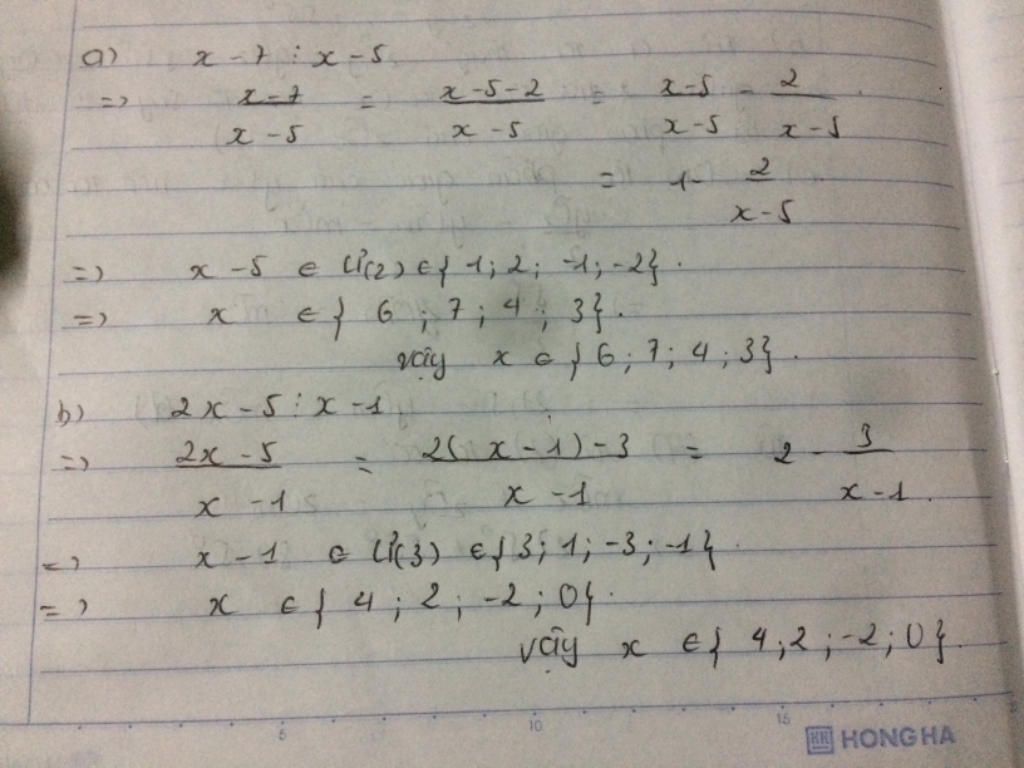 a) x - 7 ⋮ x - 5
=> x-7 / x-5 = x-5-2 / x-5 = x-5 / x-5 - 2 / x-5 .
= 1 - 2 / x-5
=) x - 5 ∈ Ư(2) ∈ { 1; 2; -1; -2} .
=> x ∈ { 6 ; 7 ; 4 ; 3} .
vậy x ∈ { 6 ; 7 ; 4 ; 3} .
b) 2x - 5 ⋮ x - 1
=> 2x - 5 / x - 1 = 2( x - 1) - 3 / x - 1 = 2 - 3 / x - 1 .
=> x - 1 ∈ Ư(3) ∈ { 3; 1; -3; -1} .
=> x ∈ { 4 ; 2 ; -2 ; 0} .
vậy x ∈ { 4 ; 2 ; -2 ; 0} .
5 10 15
HH HONG HA